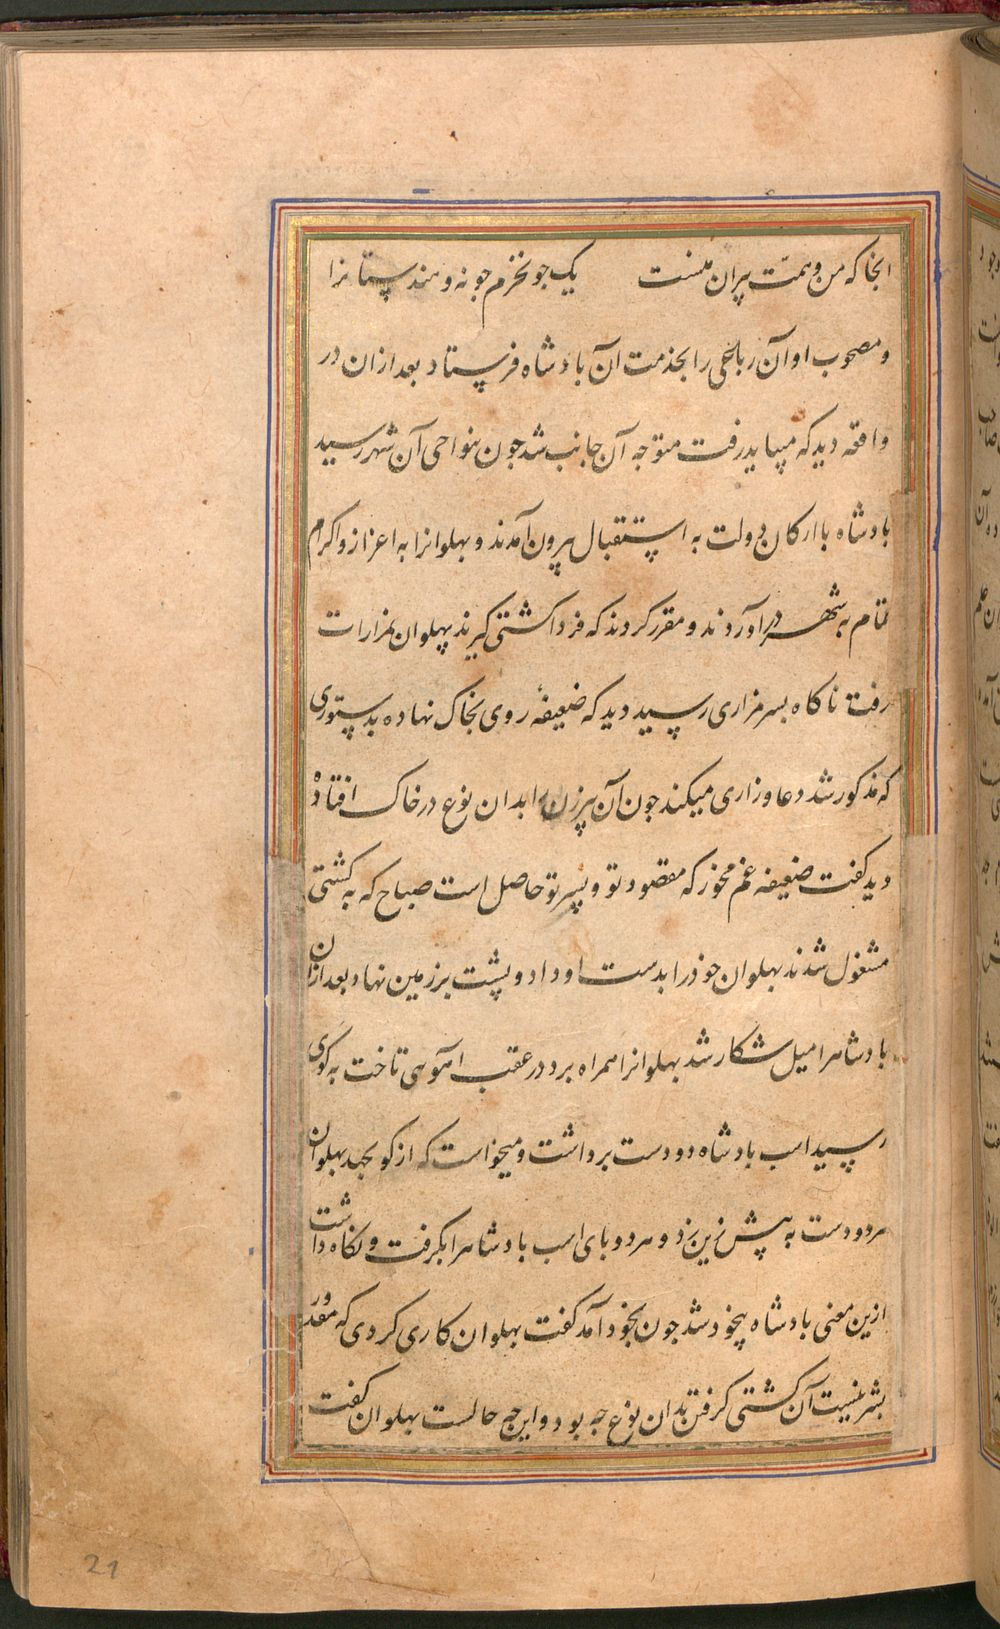 انجا که من و همت پیران منست یک جو نخزم جونه و هندستانرا
و مصحوب او آن رباعی را بخدمت آن بادشاه فرستاد بعد ازان در
واقعه دید که میباید رفت متوجه آن جانب شد جون بنواحی آن شهر رسید
بادشاه با ارکان دولت به استقبال بیرون آمدند و بهلوانرا به اعزاز و اکرام
تمام به شهر در اوردند و مقرر کردند که فردا کشتی گیرند پهلوان بمزارات
رفت ناکاه بسر مزاری رسید دید که ضعیفهٔ روی بخاک نهاده بدستوری
که مذکور شد دعا و زاری میکند جون آن پیرزن را بدان نوع در خاک افتاده
دید کفت ضعیفه غم مخور که مقصود تو و پسر تو حاصل است صباح که به کشتی
مشغول شدند بهلوان خود را بدست او داد و پشت بر زمین نهاد بعد ازان
بادشاهرا میل شکار شد بهلوانرا همراه برد در عقب اهوئی تاخت به کوی
رسید اسب بادشاه دو دست برداشت و میخواست که از کو بجهد بهلوان
هر دو دست به پیش زین زد و هر دو بای اسب بادشاهرا بکرفت و نکاه داشت
ازین معنی بادشاه بیخود شد جون بخود آمد کفت بهلوان کاری کردی که مقدور
بشر نیست آن کشتی کرفتن بدان نوع جه بود و این جه حالست بهلوان کفت
21